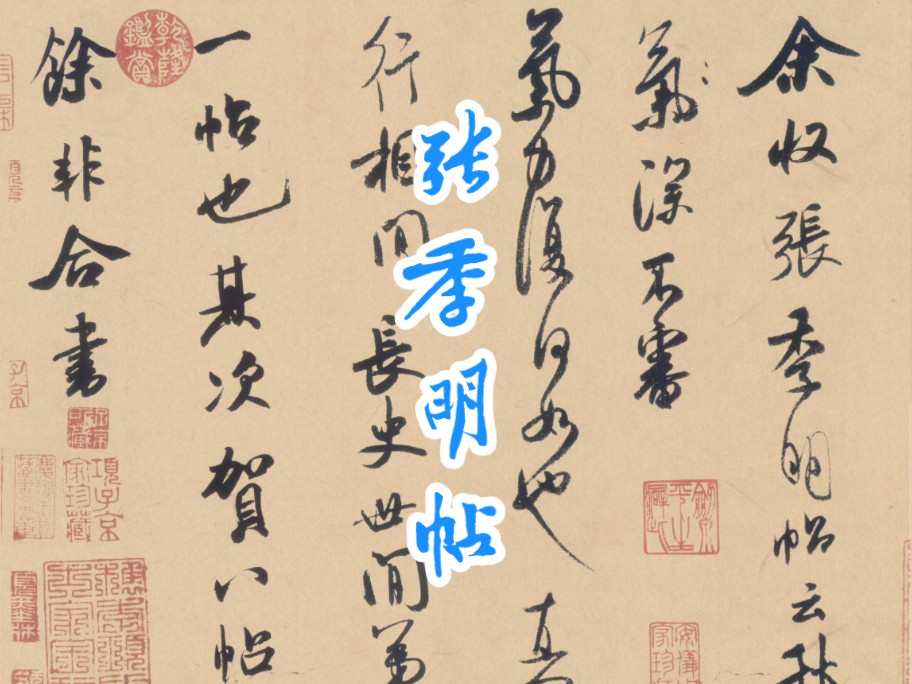 张季明帖
余收張季明帖云秋
氣深不審
氣力復何如也真
行相間長史世間第
一帖也其次賀八帖
餘非合書
乾隆鑑賞
項子京家珍藏